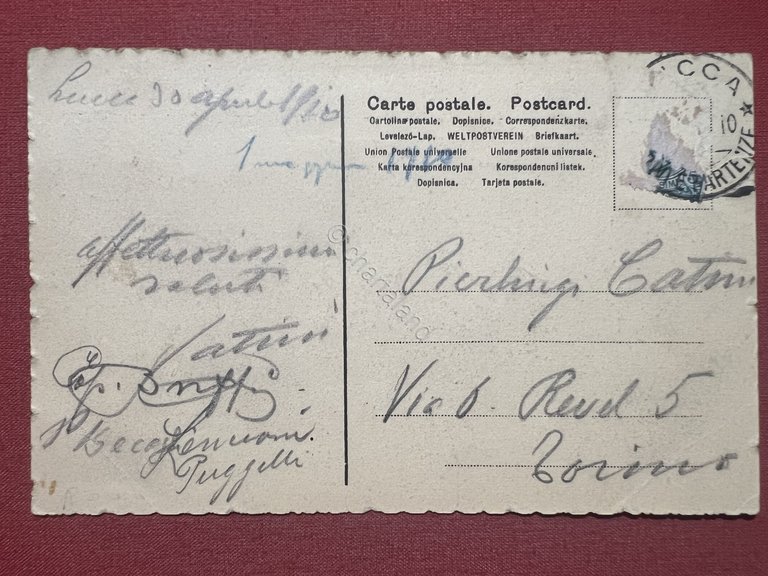 Lucca 30 aprile 1910
1 maggio 1910
affettuosissimi
saluti
Puggelli
Carte postale. Postcard.
Cartolina postale. Dopisnice. Correspondenzkarte.
Levelező-Lap. WELTPOSTVEREIN Briefkaart.
Union Postale universelle Unione postale universale
Karta korespondencyjna Korespondenční listek.
Dopisnica. Tarjeta postale.
CCA
10
PARTENZE
Pierluigi
Via O. Revel 5
Torino
©chartaland